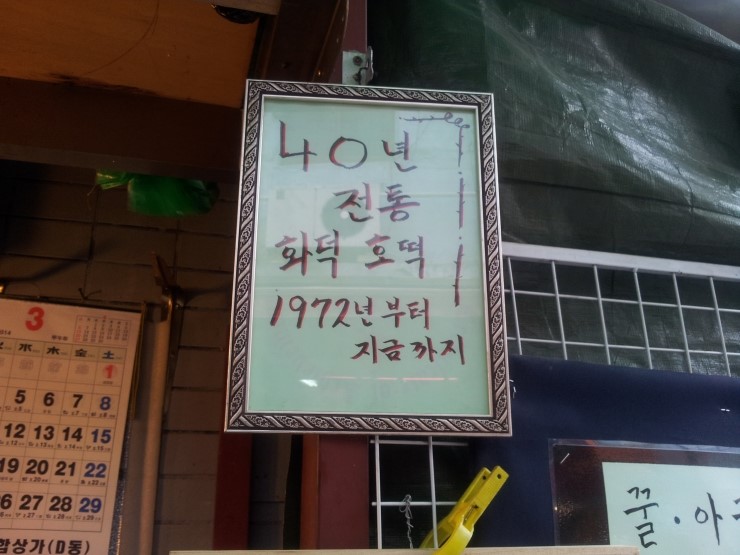 40년
전통
화덕 호떡
1972년부터
지금까지
3
水 木 金 土
1
5 6 7 8
12 13 14 15
19 20 21 22
26 27 28 29
합상가(D동)
꿀·아